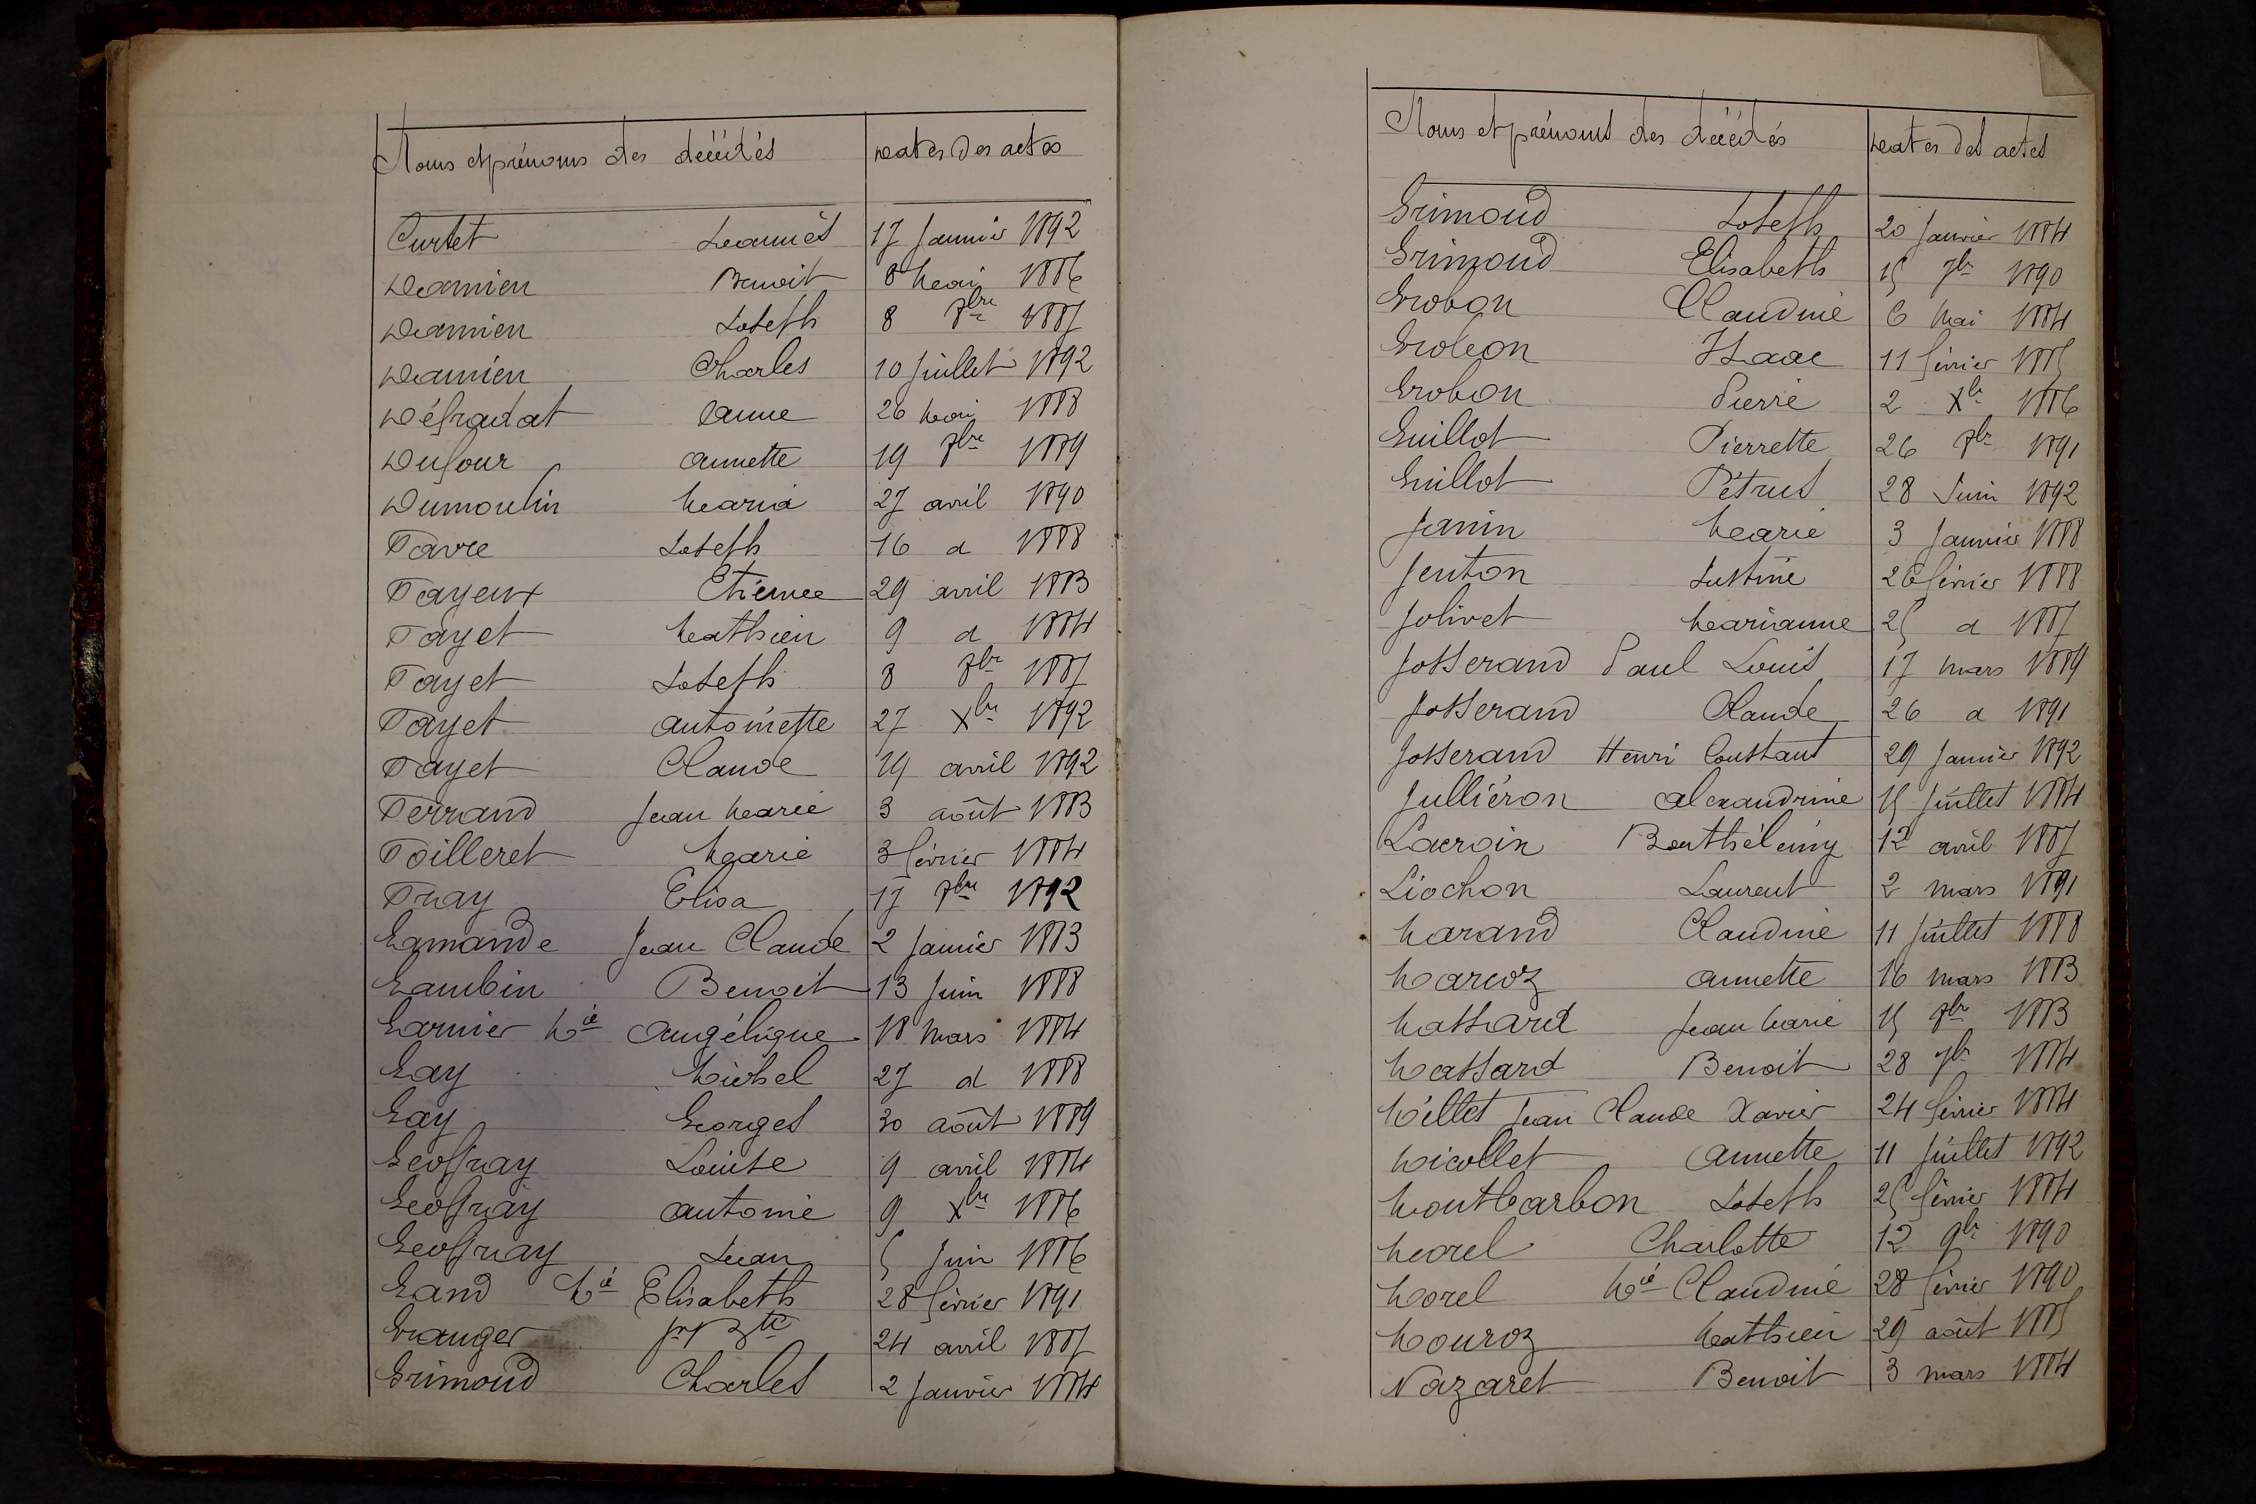 Noms et prénoms des décédés Dates des actes
Curtet Jeannès 17 Janvier 1892
Damien Benoit 8 Mai 1886
Damien Joseph 8 8bre 1887
Damien Charles 10 Juillet 1892
Défradat Anne 26 Mai 1888
Dufour Annette 19 8bre 1889
Dumoulin Maria 27 avril 1890
Favre Joseph 16 d 1888
Fayeux Etienne 29 avril 1883
Fayet Mathieu 9 d 1884
Fayet Joseph 8 8bre 1887
Fayet Antoinette 27 Xbre 1892
Fayet Claude 19 avril 1892
Ferrand Jean Marie 3 août 1883
Foilleret Marie 3 février 1884
Fray Elisa 17 8bre 1892
Gamande Jean Claude 2 Janvier 1883
Gambin Benoit 13 Juin 1888
Garnier Mie Angélique 18 Mars 1884
Gay Michel 27 d 1888
Gay Georges 30 août 1889
Geoffray Louise 9 avril 1884
Geoffray Antoine 9 Xbre 1886
Geoffray Jean 5 Juin 1886
Gand Mie Elisabeth 28 février 1891
Granger Jn Bte 24 avril 1887
Grimoud Charles 2 Janvier 1884
Noms et prénoms des décédés Dates des actes
Grimoud Joseph 20 Janvier 1884
Grimoud Elisabeth 15 7bre 1890
Grobon Claudine 6 Mai 1884
Groleon Isaac 11 février 1885
Grobon Pierre 2 Xbre 1886
Guillot Pierrette 26 8bre 1891
Guillot Pétrus 28 Juin 1892
Janin Marie 3 Janvier 1888
Jenton Justine 26 février 1888
Jolivet Marianne 25 d 1887
Josserand Paul Louis 17 mars 1889
Josserand Claude 26 d 1891
Josserand Henri Constant 29 Janvier 1892
Julliéron Alexandrine 15 Juillet 1884
Lacroix Barthélémy 12 avril 1887
Liochon Laurent 2 mars 1891
Marand Claudine 11 Juillet 1888
Marcoz Annette 16 mars 1883
Massard Jean Marie 15 8bre 1883
Massard Benoit 28 7bre 1884
Millet Jean Claude Xavier 24 février 1884
Micollet Annette 11 Juillet 1892
Montbarbon Joseph 25 février 1884
Morel Charlotte 12 9bre 1890
Morel Mie Claudine 28 février 1890
Mouroz Mathieu 29 août 1885
Nazaret Benoit 3 mars 1884